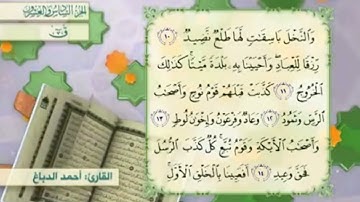 الجزء السادس والعشرون
وَالنَّخْلَ بَاسِقَاتٍ لَّهَا طَلْعٌ نَّضِيدٌ ١٠
رِّزْقًا لِّلْعِبَادِ وَأَحْيَيْنَا بِهِ بَلْدَةً مَّيْتًا كَذَٰلِكَ
الْخُرُوجُ ١١ كَذَّبَتْ قَبْلَهُمْ قَوْمُ نُوحٍ وَأَصْحَابُ
الرَّسِّ وَثَمُودُ ١٢ وَعَادٌ وَفِرْعَوْنُ وَإِخْوَانُ لُوطٍ ١٣
وَأَصْحَابُ الْأَيْكَةِ وَقَوْمُ تُبَّعٍ كُلٌّ كَذَّبَ الرُّسُلَ
فَحَقَّ وَعِيدِ ١٤ أَفَعَيِينَا بِالْخَلْقِ الْأَوَّلِ
القارئ: أحمد الدباغ